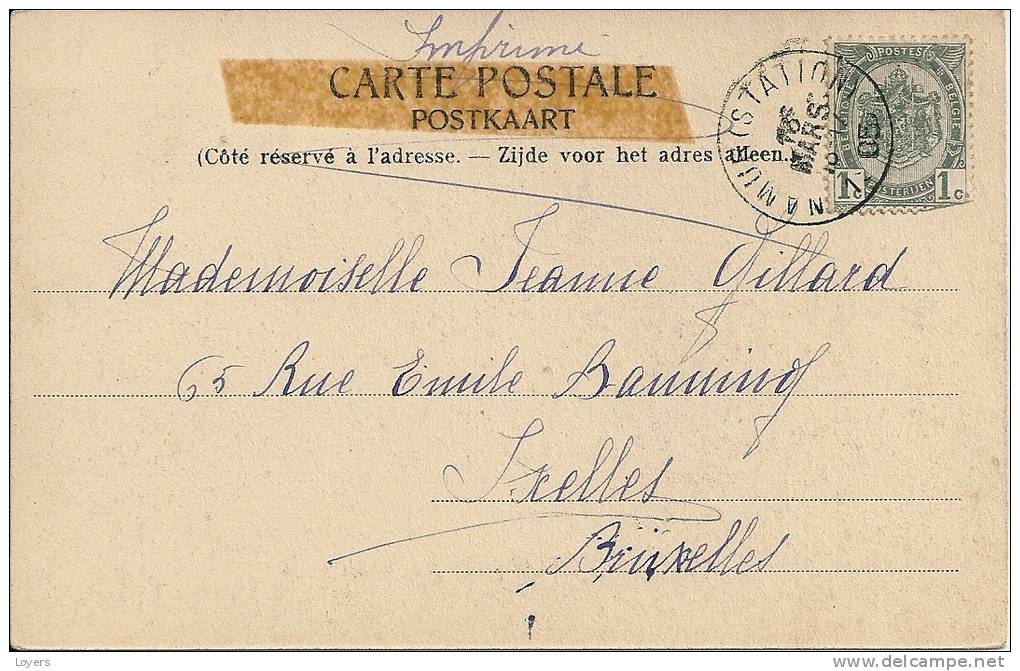 Imprimé
CARTE POSTALE
POSTKAART
(Côté réservé à l'adresse. — Zijde voor het adres alleen.)
NAMUR (STATION)
18
MARS
05
POSTES
BELGIQUE
BELGIE
POSTERIJEN
1c 1c
Mademoiselle Jeanne Gillard
65 Rue Emile Banning
Ixelles
Bruxelles
Loyers
delcampe.net